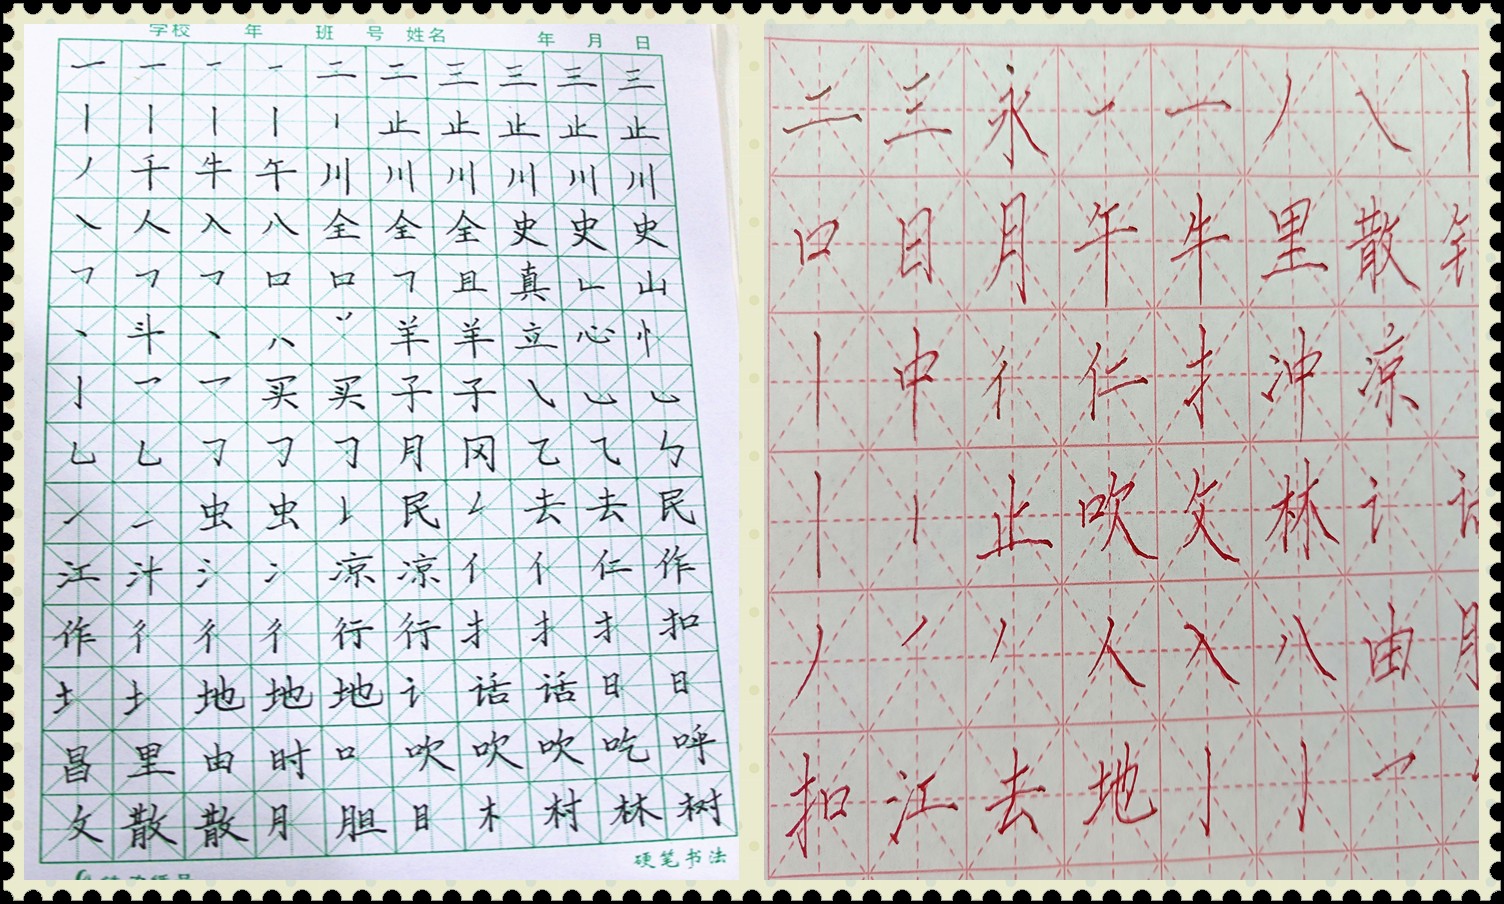 学校 年 班 号 姓名 年 月 日
一 一 一 一 二 二 三 三 三 三
丨 丨 丨 丨 丨 止 止 止 止 止
丿 千 牛 午 川 川 川 川 川 川
㇏ 人 入 八 全 全 全 史 史 史
㇕ ㇕ ㇕ 口 口 ㇕ 且 真 ㇗ 山
丶 斗 丶 八 丷 羊 羊 立 心 忄
亅 乛 乛 买 买 子 子 ㇂ ㇃ ㇃
乚 乚 ㇆ ㇆ ㇆ 月 冈 乙 ⺄ ㇉
㇀ ㇀ 虫 虫 ㇙ 民 𠃋 去 去 民
江 汁 氵 冫 凉 凉 亻 亻 仁 作
作 彳 彳 彳 行 行 扌 扌 扌 扣
土 土 地 地 地 讠 话 话 日 日
昌 里 由 时 口 吹 吹 吹 吃 呼
文 散 散 月 胆 目 木 村 林 树
硬笔书法
二 三 永 一 一 丿 ㇏ 丨
口 日 月 午 牛 里 散
丨 中 彳 仁 扌 冲 凉
丨 丨 止 吹 文 林 讠
丿 丿 丿 人 入 八 由
扣 江 去 地 亅 亅 乛